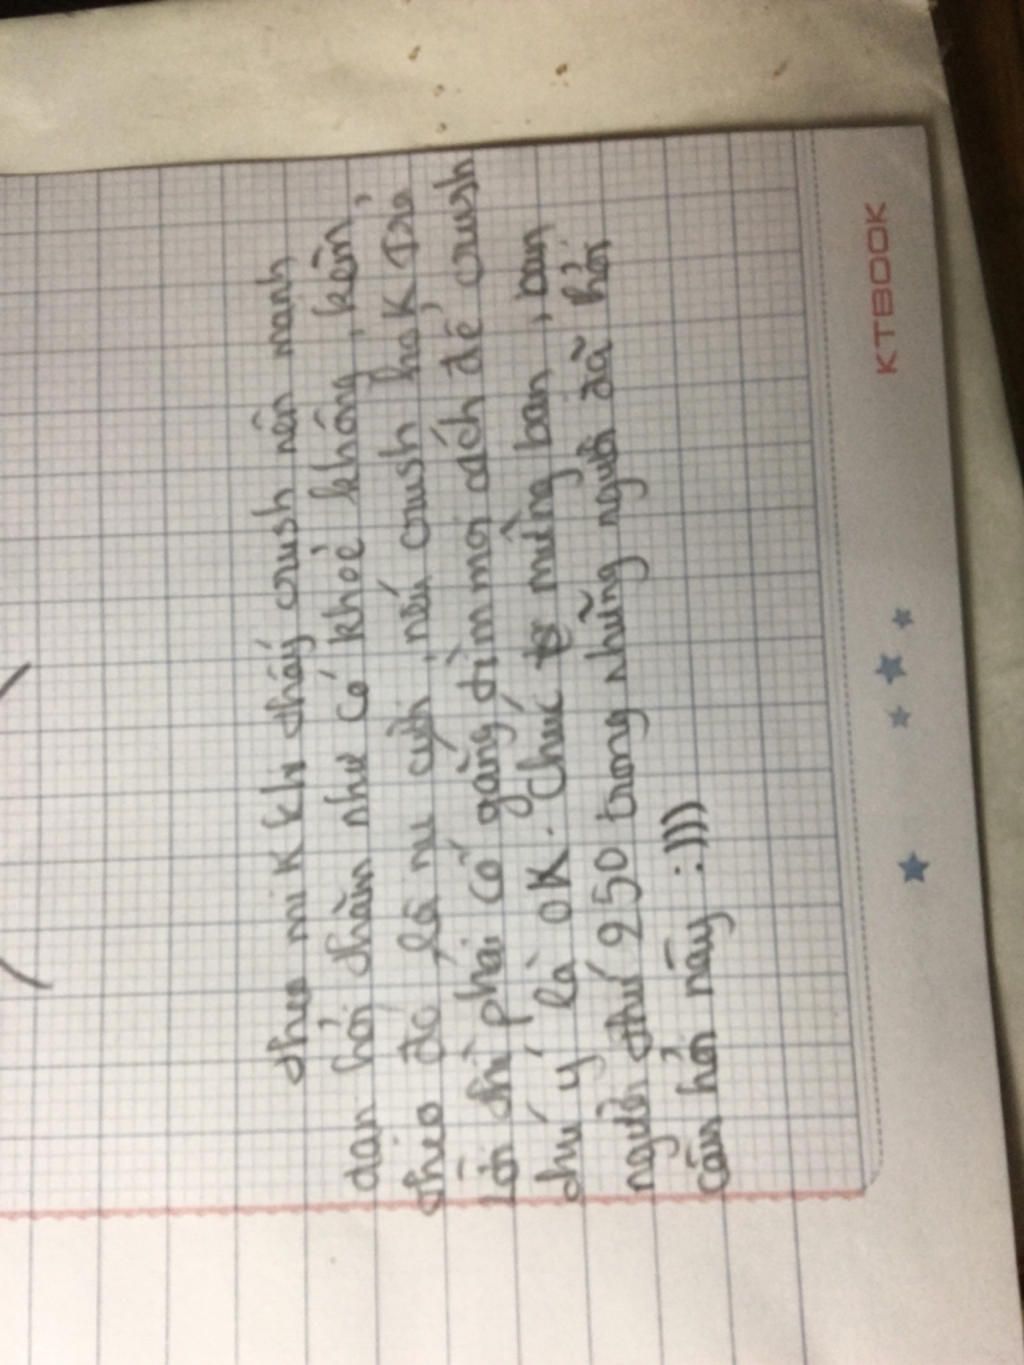 theo mik khi thấy crush nên mạnh
dạn hỏi thăm như có khoẻ không, kèm,
theo đó, là nụ cười, nếu crush hok trả
lời thì phải cố gắng tìm mọi cách để crush
chú ý là OK. Chúc mừng bạn, bạn
người thứ 250 trong những người đã hỏi
câu hỏi này :))))
KTBOOK